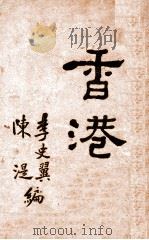 香港
李史翼
陳湜編
mtoou.info